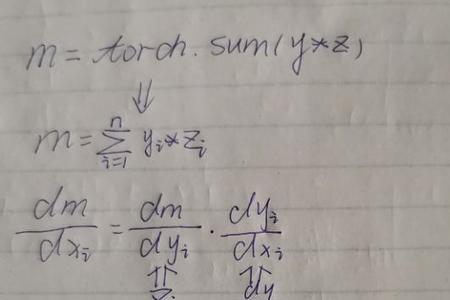 m = torch.sum(y*z)
⇓
m = Σ_{i=1}^{n} y_i * z_i
dm/dx_i = dm/dy_i · dy_i/dx_i
⇑ ⇑
z_i dy